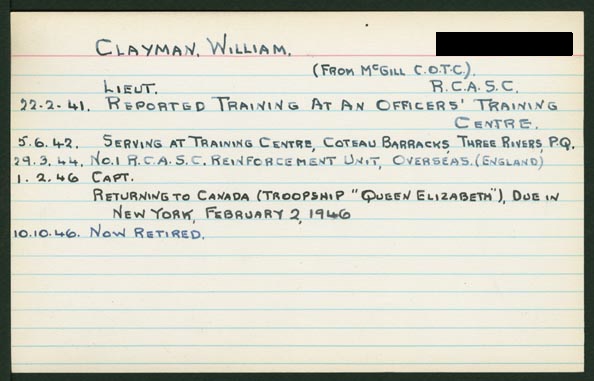 CLAYMAN, WILLIAM.
(FROM McGILL C.O.T.C.).
LIEUT. R.C.A.S.C.
22-2-41. REPORTED TRAINING AT AN OFFICERS' TRAINING
CENTRE.
5.6.42. SERVING AT TRAINING CENTRE, COTEAU BARRACKS, THREE RIVERS, P.Q.
29.3.44. NO.1 R.C.A.S.C. REINFORCEMENT UNIT, OVERSEAS. (ENGLAND)
1.2.46 CAPT.
RETURNING TO CANADA (TROOPSHIP "QUEEN ELIZABETH"), DUE IN
NEW YORK, FEBRUARY 2, 1946
10.10.46. NOW RETIRED.